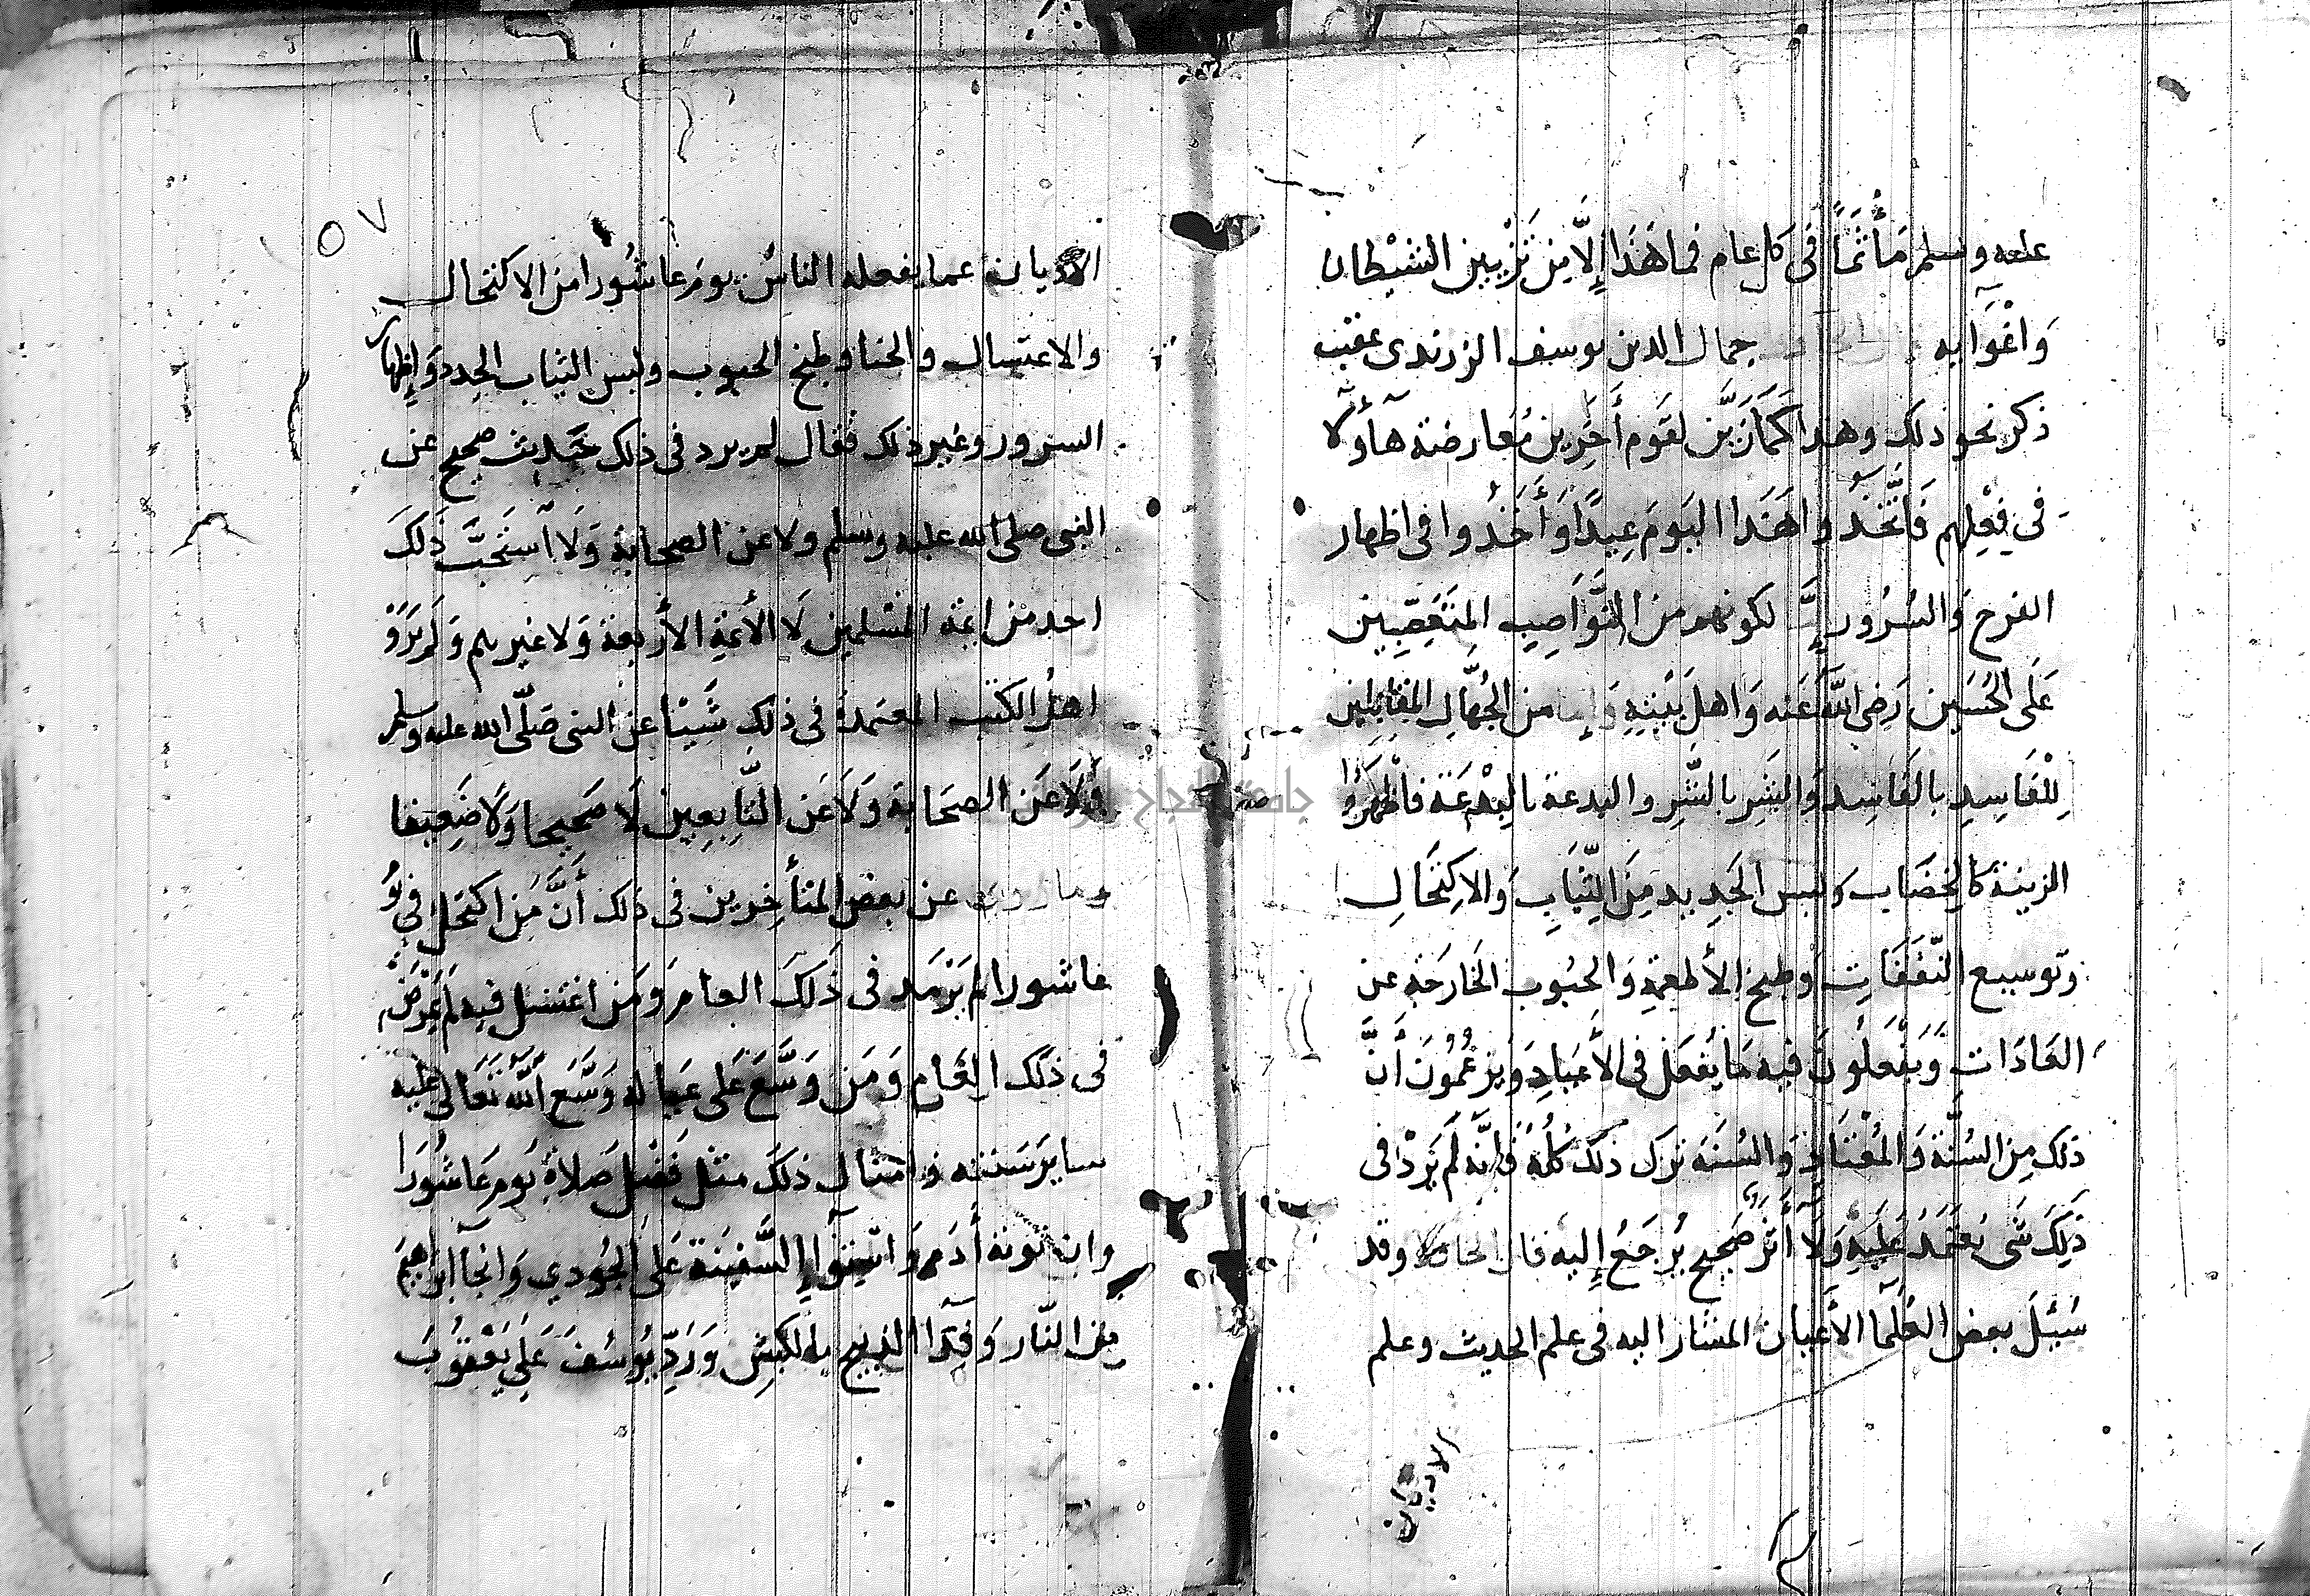 عليه وسلم مَأْتَمًا فى كل عام فما هَذَا إِلَّا مِن تَزْيِين الشيْطان
وَاغْوَايِه جمال الدين يوسف الزرندى عقيب
ذكر نحو ذلك وهذا كَمَا زَيَّنَ لقوم أَخَرِين مُعَارضة هآؤُلآ
فى فِعْلِهم فَاتَّخَذُوا هَذَا اليَومَ عِيدًا وَأَخَذُوا فى اظهار
الفرح وَالسُرُور إِمَّا لكونهم من النَّوَاصِبِ المتَعَصِّبِين
عَلَى الحُسَين رَضى اللّه عَنه وَاهل بَيتِهِ وَإما من الجُهَّال المقابِلين
لِلْفَاسِدِ بالفَاسِد وَالشَرِ بالشَّرِ والبدعة بالبِدْعَة فاظْهَرُوا
الزينة كالخِضَاب ولبس الجَدِيد مِنَ الثِّيَابِ وَالاِكتِحَالِ
وتوسيع النَّفَقَاتِ وطبخ الأطعِمَةِ وَالحُبُوب الخَارِجَة عن
العَادَات وَيَفْعَلُونَ فيه مَا يُفعَل فى الأَعيَادِ وَيَزعُمُونَ أَنَّ
ذلك مِن السُنَّة وَالمُعْتَادِ وَالسُنَة تَرك ذلك كُلُهُ فَإِنَّه لَم يَرد فى
ذَلِكَ شَى يُعتَمَدُ عَلَيهِ وَلَآ أَثَرٌ صَحِيح يُرجَعُ إليه قال الحافظ وقد
سُئِلَ بعض العُلَمآ الأَعيان المشار اليه فى علم الحديث وعلم
الاديان
٥٧
الاديان عما يفعله الناس يوم عاشُورا من الاكتحال
والاغتسال والحنا وطبخ الحبوب ولبس الثياب الجدد وَإِظهار
السرور وغير ذلك فقال لم يرد فى ذلك حَديث صحيح عن
النبى صلى الله عليه وسلم ولا عن الصحابة وَلَا آستَحَبَّ ذَلكَ
احد من ائمة المسلمين لَا الأئمةِ الأربعة وَلا غيرهم وَلَم يَرَوْ
اهلُ الكتب المعتمدة فى ذلك شَيئًا عن النبى صَلّى الله عليه وسلم
وَلَا عَن الصحَابة وَلَا عَن التَّابِعِين لَا صَحِيحا وَلَا ضَعِيفا
وما روى عن بعض المتأخِرين فى ذلك أَنَّ مَن اكتحل فى يَوُ
عاشورا لم يَرْمَد فى ذَلكَ العام وَمَن اغتسل فيه لَم يَمْرَضْ
فى ذلك العَام وَمَن وَسَّعَ عَلى عيَاله وَسَّع اللَّه تَعَالى عليه
ساير سَنته وامثال ذلكَ مثل فَضل صَلاةِ يَوم عَاشُورَا
وان توبة أَدَم وَاستِوَآءِ السَّفِينَة عَلى الجُودِي وَانجَآ ابرَاهِيمَ
مِن النّار وَفِدَآ الذبِيح بالكبشِ وَرَدِّ يُوسُفَ عَلى يَعْقُوبَ